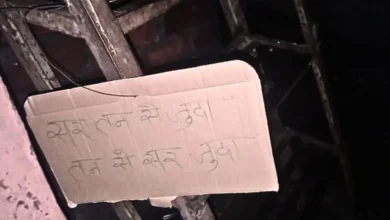 सर तन से जुदा
तन से सर जुदा